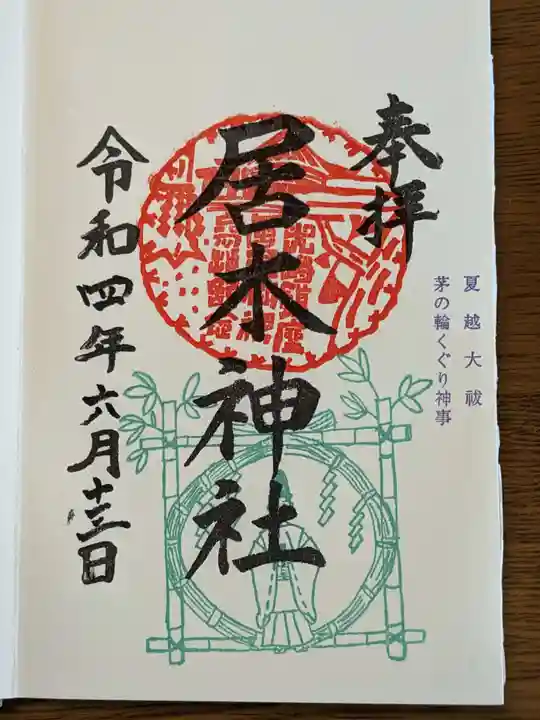 夏越大祓
茅の輪くぐり神事
奉拝
居木神社
令和四年六月十三日